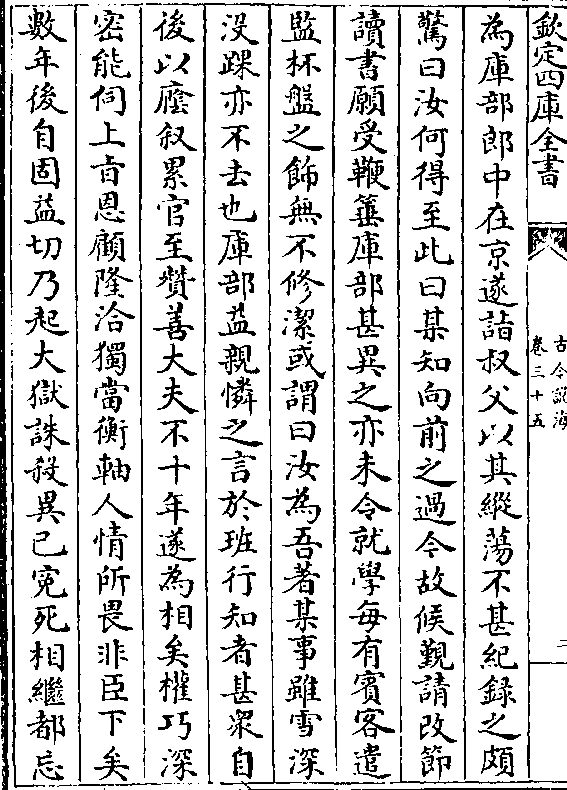 欽定四庫全書
古今説海
卷三十五
二
為庫部郎中在京遂詣叔父以其縱蕩不甚紀録之頗
驚曰汝何得至此曰某知向前之過今故候覲請改節
讀書願受鞭箠庫部甚異之亦未令就學每有賓客遣
監杯盤之飾無不修潔或謂曰汝為吾著某事雖雪深
没踝亦不去也庫部益親憐之言於班行知者甚衆自
後以廕叙累官至贊善大夫不十年遂為相矣權巧深
密能伺上㫖恩顧隆洽獨當衡軸人情所畏非臣下矣
數年後自固益切乃起大獄誅殺異已寃死相繼都忘